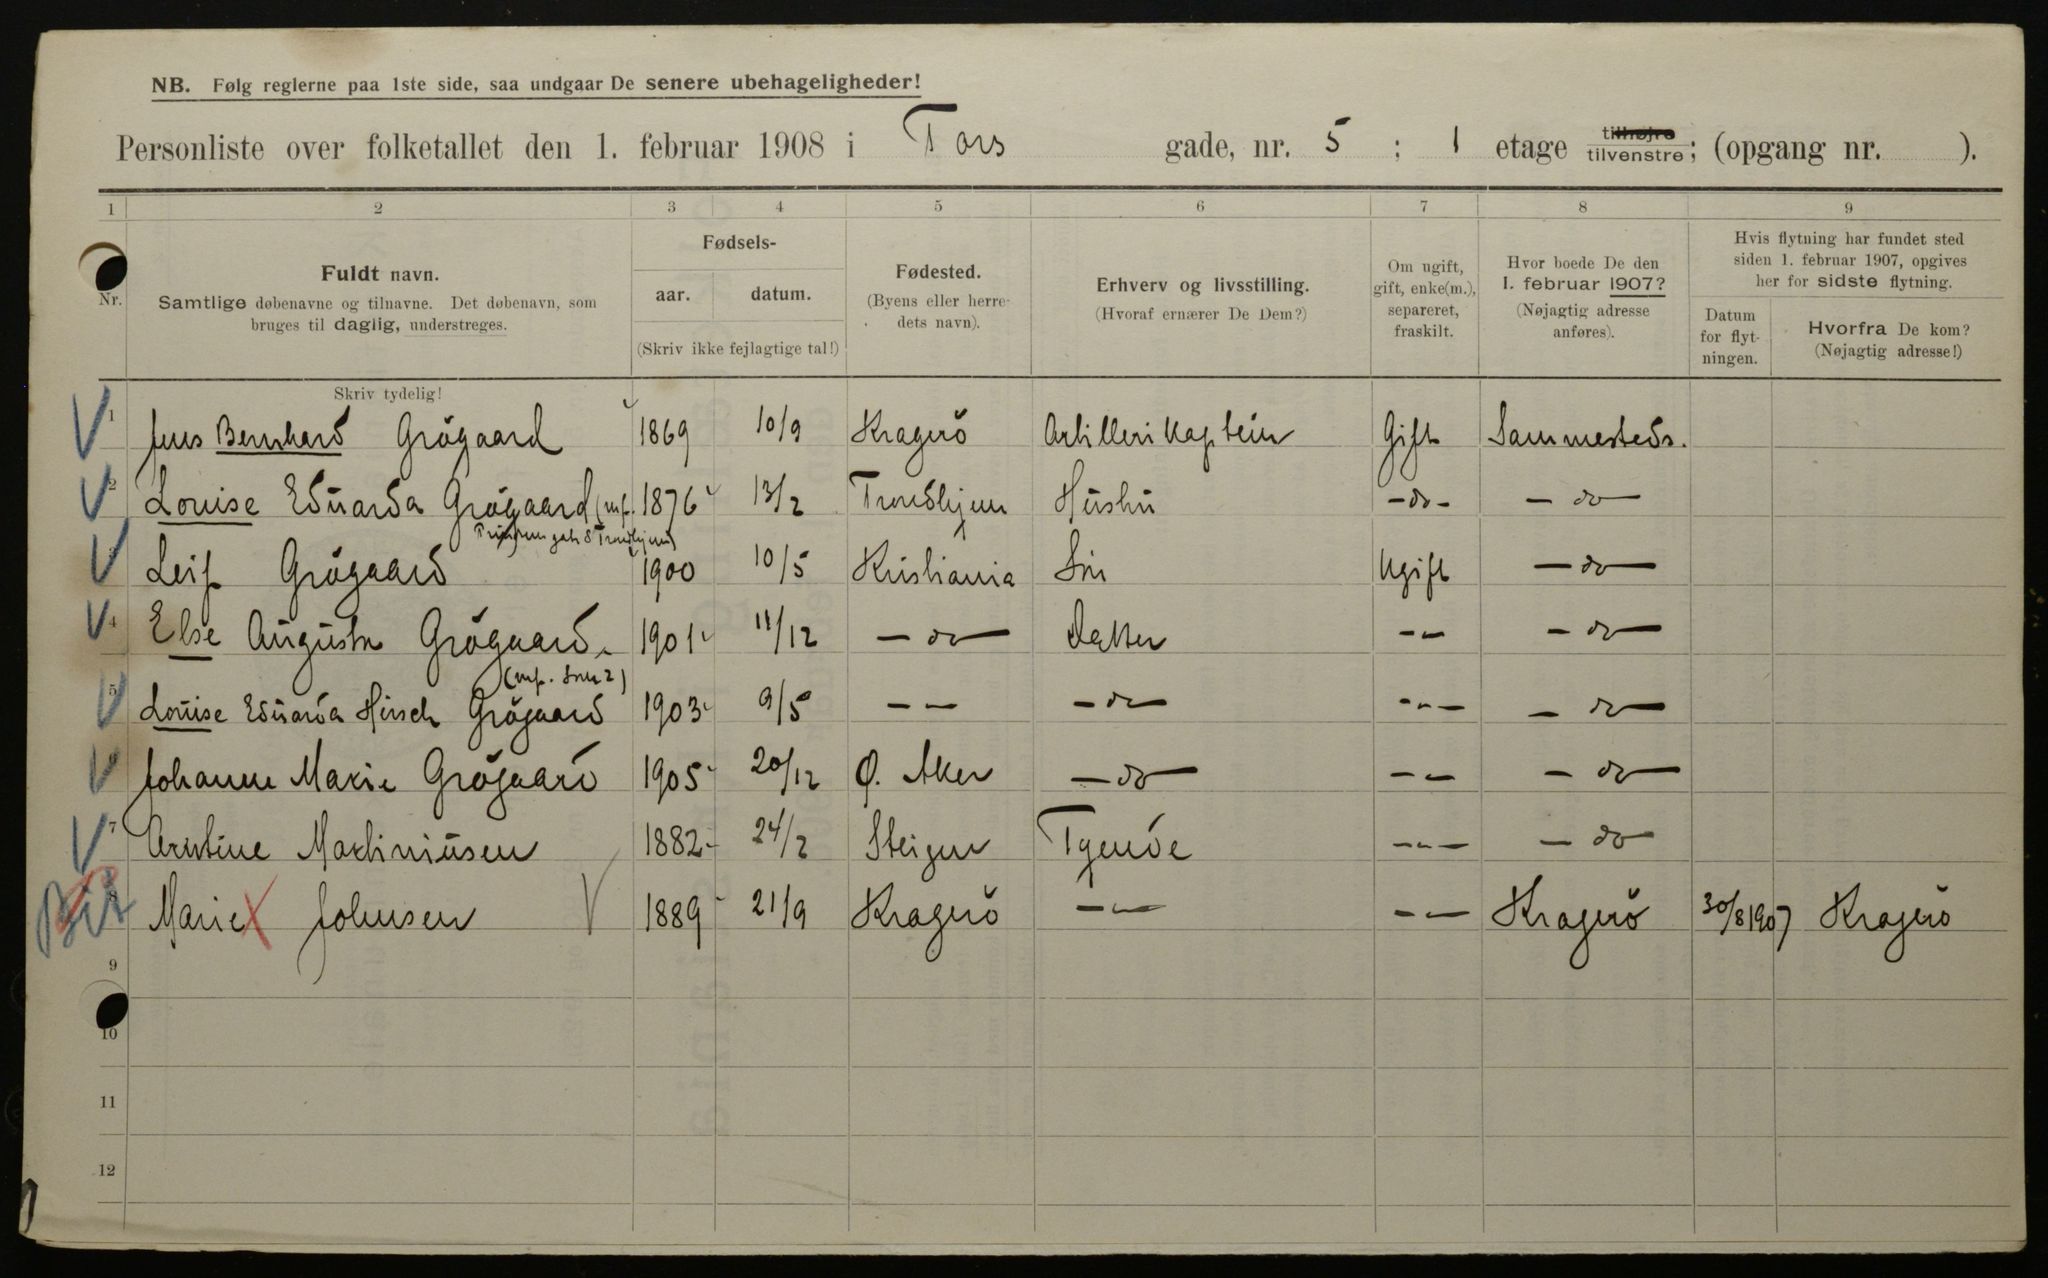 NB. Følg reglerne paa 1ste side, saa undgaar De senere ubehageligheder!
Personliste over folketallet den 1. februar 1908 i Tors gade, nr. 5 ; 1 etage tilhøjre tilvenstre; (opgang nr. ).
1 2 3 4 5 6 7 8 9
Nr.
Fuldt navn.
Samtlige døbenavne og tilnavne. Det døbenavn, som
bruges til daglig, understreges.
Fødsels-
aar. datum.
(Skriv ikke fejlagtige tal!)
Fødested.
(Byens eller herre-
dets navn).
Erhverv og livsstilling.
(Hvoraf ernærer De Dem?)
Om ugift,
gift, enke(m.),
separeret,
fraskilt.
Hvor boede De den
1. februar 1907?
(Nøjagtig adresse
anføres).
Hvis flytning har fundet sted
siden 1. februar 1907, opgives
her for sidste flytning.
Datum
for flyt-
ningen.
Hvorfra De kom?
(Nøjagtig adresse!)
Skriv tydelig!
1 Jens Bernhard Grögaard 1869 10/9 Kragerö Artillerikaptein Gift Sammesteds.
2 Louise Eduarda Grögaard 1876 13/2 Trondhjem Hustru -do- - do
3 Leif Grögaard 1900 10/5 Kristiania Sön Ugift - do -
4 Else Augusta Grögaard 1901 11/12 - do - Datter - „ - - do -
5 Louise Eduarda Hirsch Grögaard 1903 9/5 - - - do - - „ - - do -
6 Johanne Marie Grögaard 1905 20/12 Ø. Aker - do - - „ - - do -
7 Arntine Martiniusen 1882 24/2 Steigen Tjende - „ - - do
8 Marie X Johnsen 1889 21/9 Kragerö - „ - - „ - Kragerö 30/8 1907 Kragerö
9
10
11
12